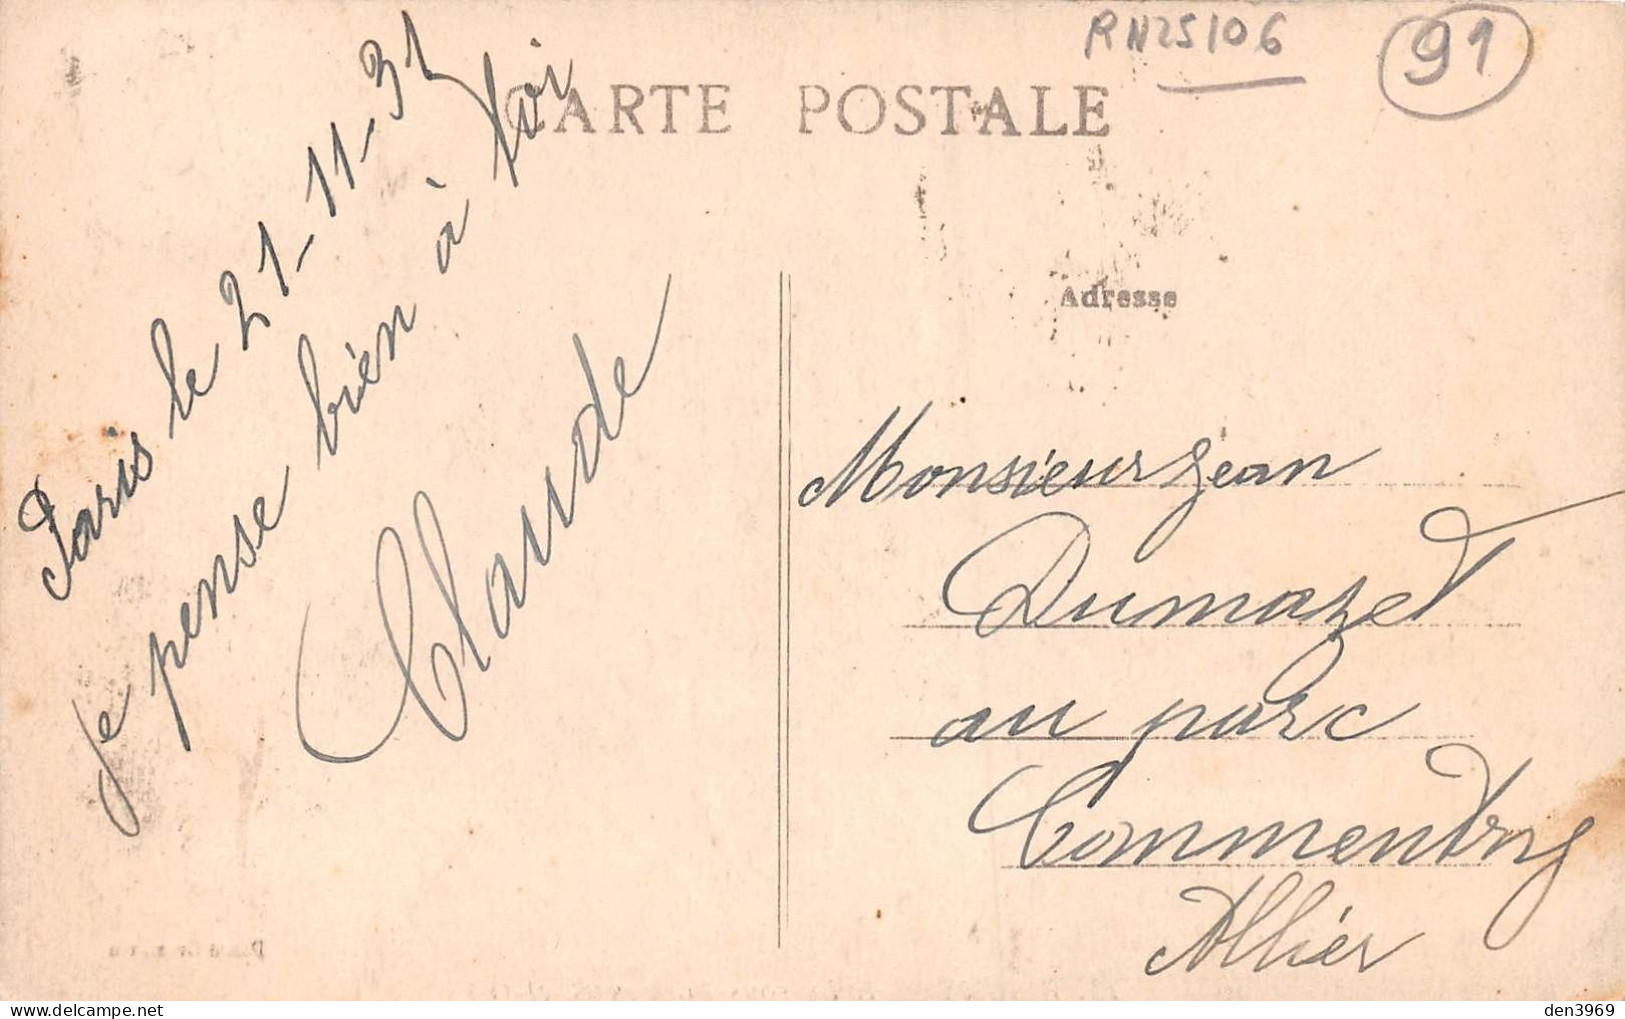 RN25106
91
CARTE POSTALE
Paris le 21-11-31
je pense bien à toi
Claude
Adresse
Monsieur Jean
Dumazet
au parc
Commentry
Allier
den3969